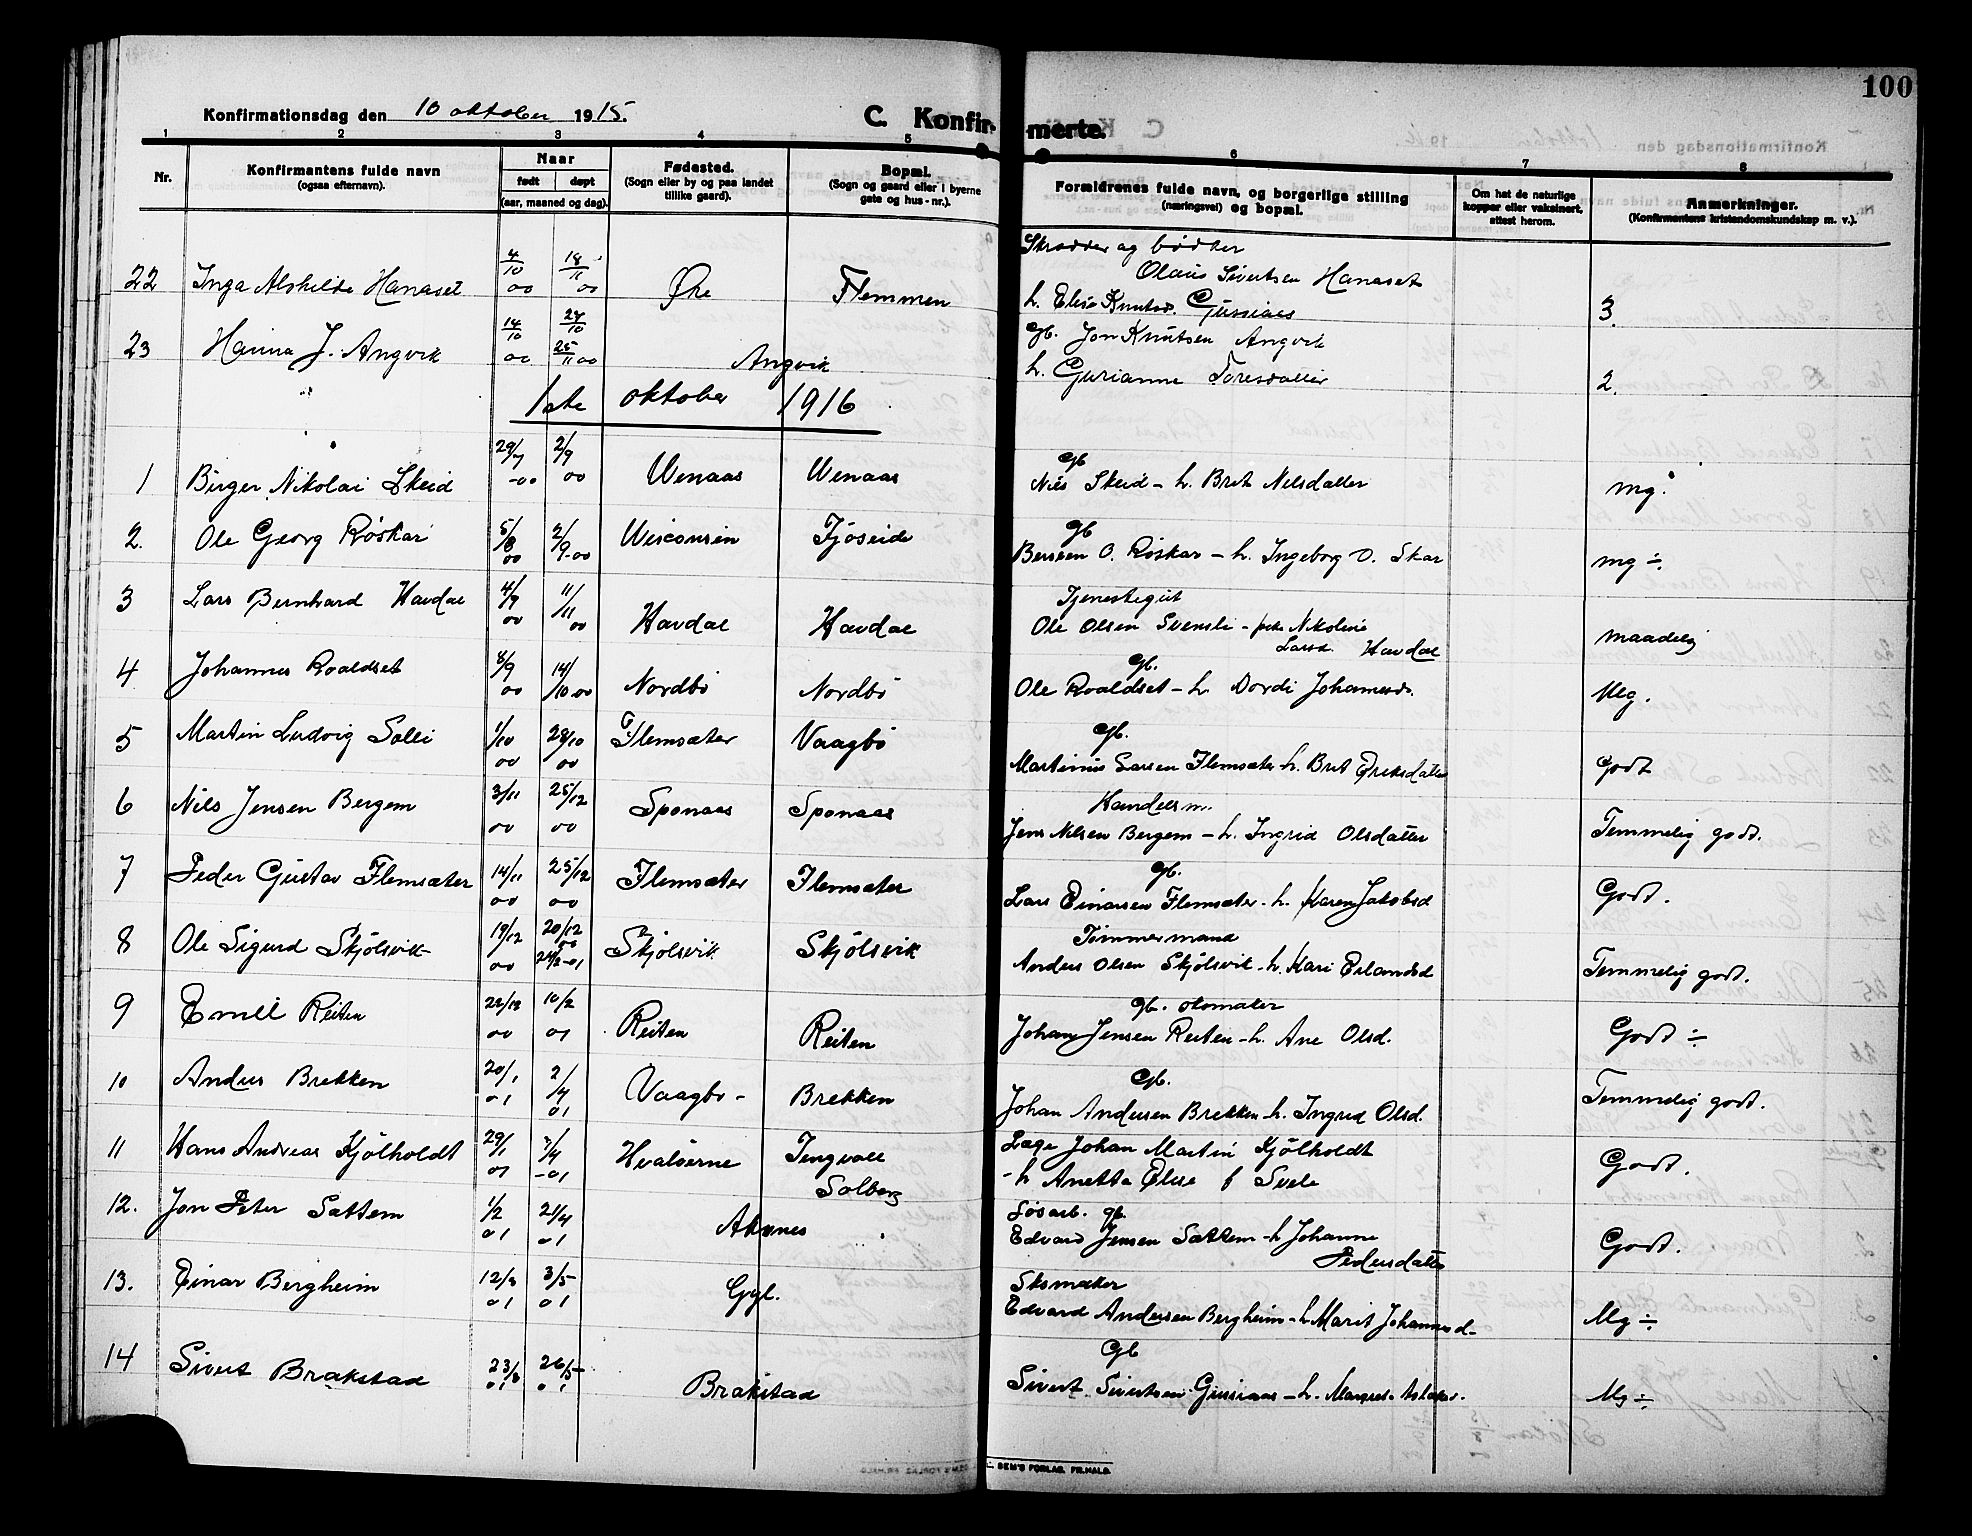 100
Konfirmationsdag den 10 oktober 1915.
C. Konfir- merte.
1 2 3 4 5 6 7 8
Nr.
Konfirmantens fulde navn
(ogsaa efternavn).
Naar
født døpt
(aar, maaned og dag).
Fødested.
(Sogn eller by og paa landet
tillike gaard).
Bopæl.
(Sogn og gaard eller i byerne
gate og hus-nr.).
Forældrenes fulde navn, og borgerlige stilling
(næringsvei) og bopæl.
Om hat de naturlige
kopper eller vaksinert,
attest herom.
Anmerkninger.
(Konfirmantens kristendomskundskap m. v.).
Skrædder og bødker
22 Inga Alvhilde Hanaset 4/10 00 18/11 00 Øre Flemmen Olaus Sivertsen Hanaset
h. Elise Knutsd. Gussiaas 3.
23 Hanna J. Angvik 14/10 00 24/10 25/11 00 Angvik gb. Jon Knutsen Angvik
h. Gurianne Toresdatter 2.
1ste oktober 1916
gb
1 Birger Nikolai Skeid 29/7 -00 2/9 00 Wenaas Wenaas Nils Skeid - h. Brit Nilsdatter mg.
gb
2. Ole Georg Röskar 5/8 00 2/9-00 Wisconsin Tjöseide O. Röskar - h. Ingeborg O. Skar mg ÷
Tjenestegut
3 Lars Bernhard Havdal 4/9 00 11/11 00 Havdal Havdal Ole Olsen Svensli - pike Nikoline
Larsd. Havdal maadelig
gb.
4 Johannes Roaldset 8/9 00 14/10 00 Nordbö Nordbö Ole Roaldset - h. Dordi Johannesd. Mg.
gb.
5 Martin Ludvig Solli 1/10 00 28/10 00 Flemsæter Vaagbö Martinus Larsen Flemsæter h. Brit Eriksdatter Godt
Handelsm.
6 Nils Jensen Bergem 3/11 00 25/12 00 Sponaas Sponaas Jens Nilsen Bergem - h. Ingrid Olsdatter Temmelig godt.
gb.
7 Peder Gustav Flemsæter 14/11 00 25/12 00 Flemsæter Flemsæter Lars Einarsen Flemsæter - h. Karen Jakobsd Godt.
Tömmermand
8 Ole Sigurd Skjölsvik 19/12 00 20/12 00 24/2-01 Skjölsvik Skjölsvik Anders Olsen Skjölsvik - h. Kari Erlandsd Temmelig godt.
gb. skomaker
9 Emil Reiten 22/12 00 10/2 01 Reiten Reiten Johan Jensen Reiten - h. Ane Olsd. Godt ÷
Gb.
10 Anders Brekken 20/1 01 2/4 01 Vaagbö - Brekken Johan Andersen Brekken h. Ingrid Olsd. Temmelig godt.
11 Hans Andreas Kjölholdt 29/1 01 7/4 -01 Hvalöerne Tingvoll
Solberg Læge Johan Martin Kjölholdt
- h Anetta Elise f Svele Godt.
12. Jon Peter Sættem 1/2 01 21/4 01 Aksnes Løsarb. gb.
Edvard Jensen Sættem - h Johanne
Pedersdatter Godt.
13. Einar Bergheim 12/3 01 3/5 01 Gyl. Skomaker
Edvard Andersen Bergheim - h Marit Johannesd - Mg ÷
Gb
14 Sivert Brakstad 23/3 01 26/5 01 Brakstad Sivert Sivertsen Gussiaas - h. Mg ÷
SEM'S FORLAG, FR.HALD.